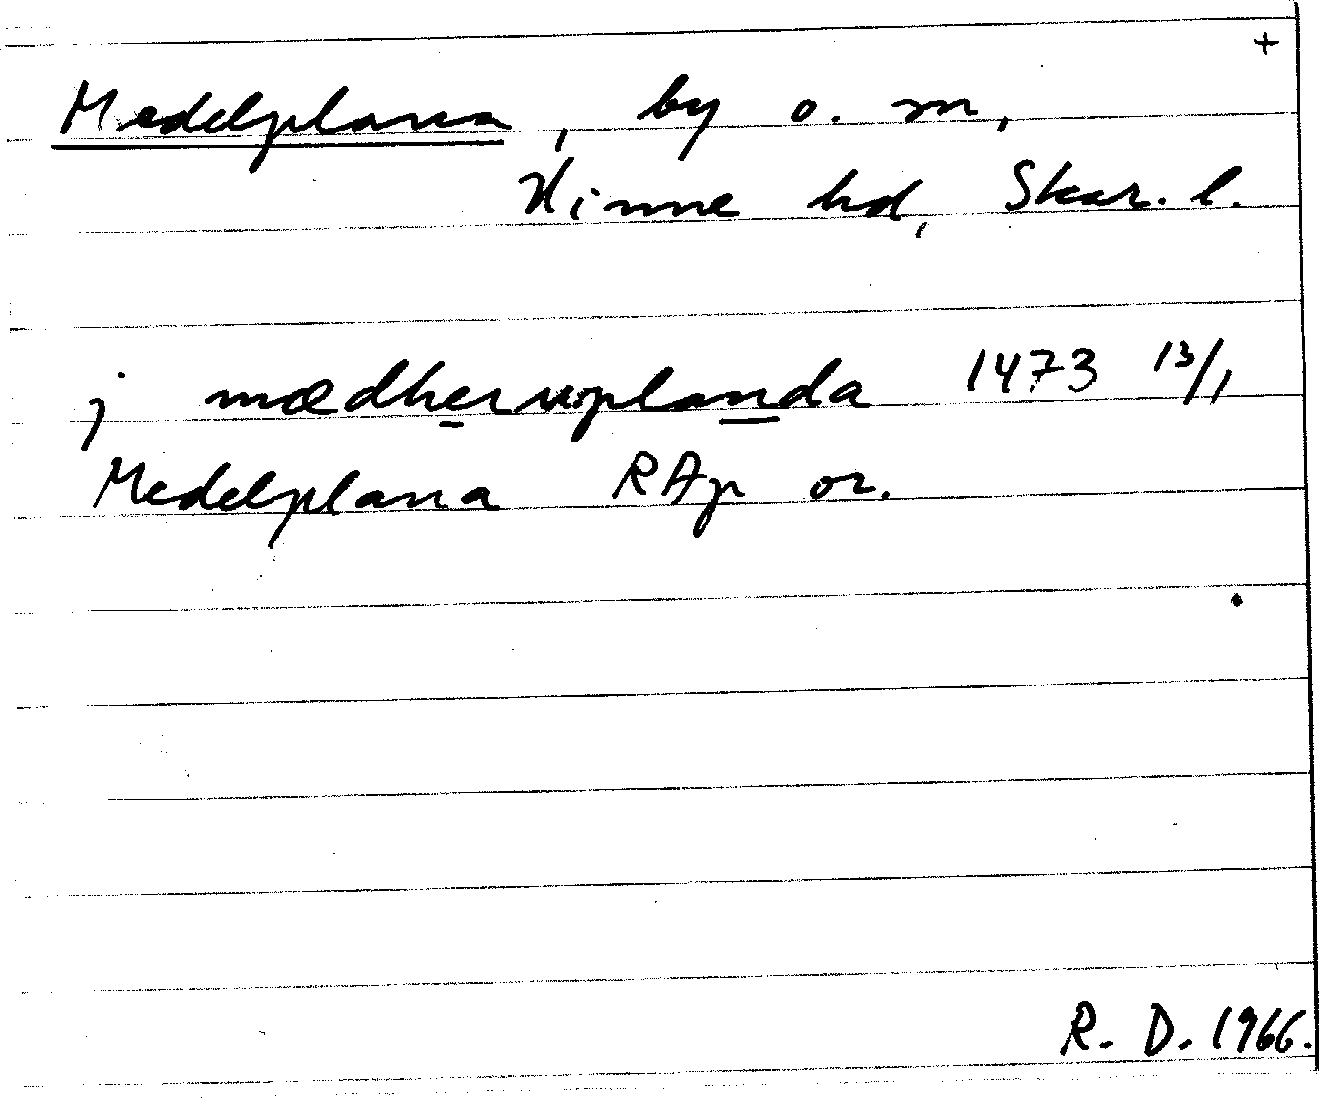 +
Medelplana, by o. m,
Kinne hd, Skar. l.
j mædheruplanda 1473 13/1
Medelplana RAp or.
R. D. 1966.